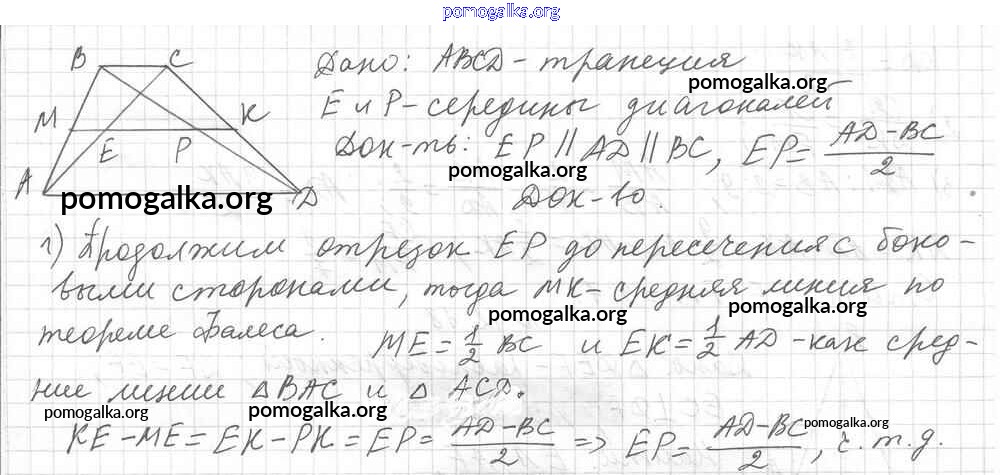 pomogalka.org
B C
M K
E P
A D
Дано: ABCD - трапеция
pomogalka.org
E и P - середины диагоналей
Док-ть: EP || AD || BC, EP = AD-BC/2
pomogalka.org
pomogalka.org
Док-во.
1) Продолжим отрезок EP до пересечения с боко-
выми сторонами, тогда MK - средняя линия по
pomogalka.org
pomogalka.org
теореме Фалеса. ME = 1/2 BC и EK = 1/2 AD - как сред-
ние линии △ BAC и △ ACD.
pomogalka.org
pomogalka.org
pomogalka.org
KE - ME = EK - PK = EP = AD-BC/2 => EP = AD-BC/2, ч.т.д.